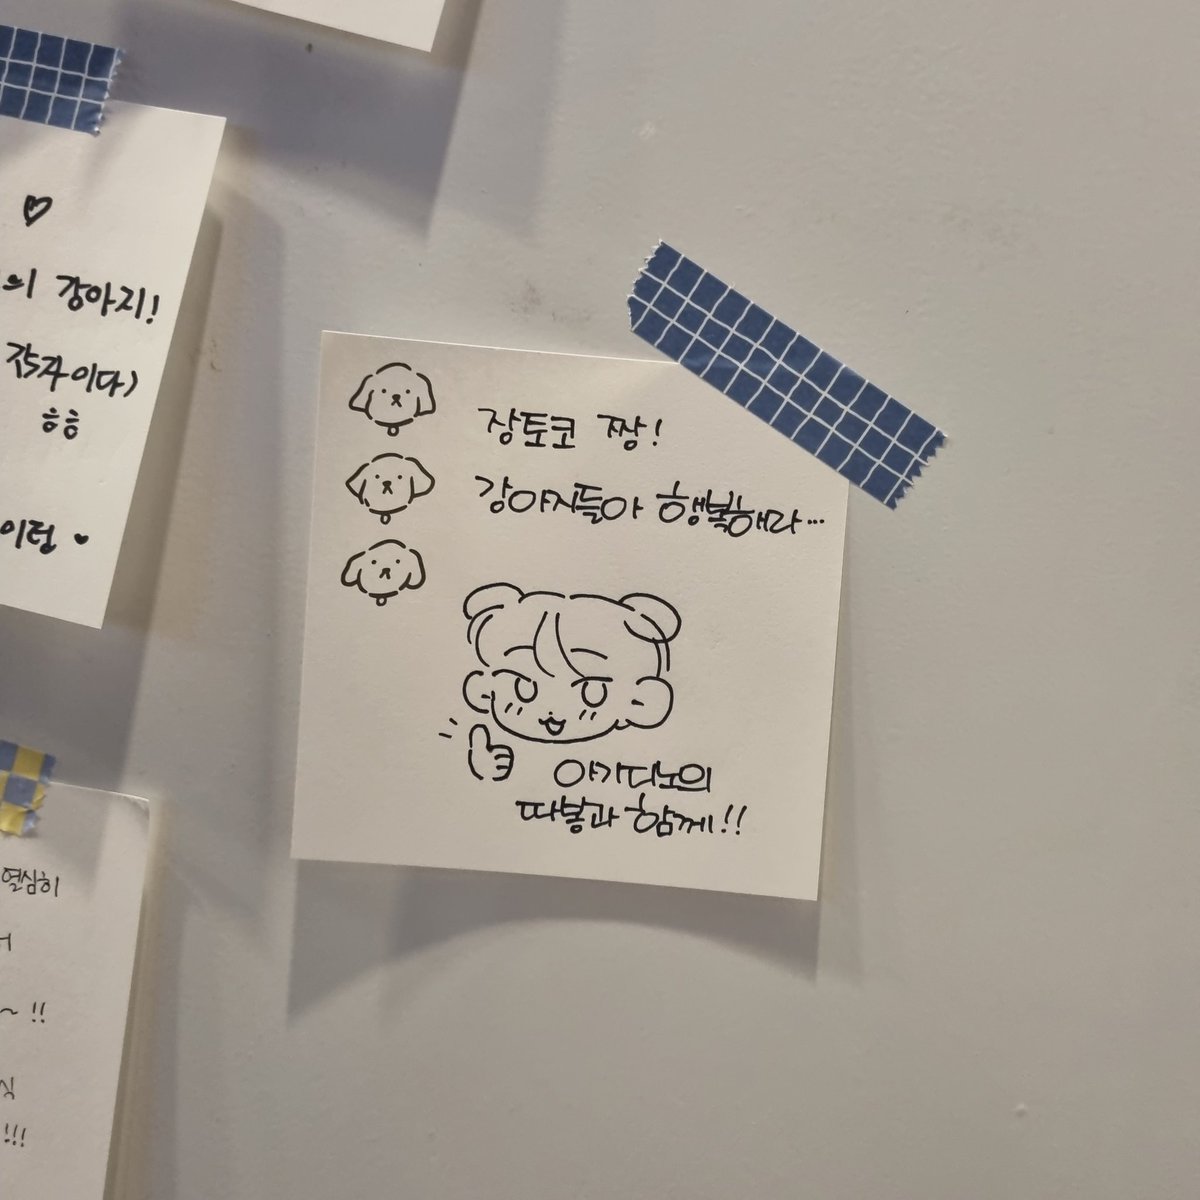 의 강아지!
작가이다)
ㅎㅎ
이텀
열심히
~ !!
!!!
장토코 짱!
강아지들아 행복해라…
아기디노의
따봉과 함께!!